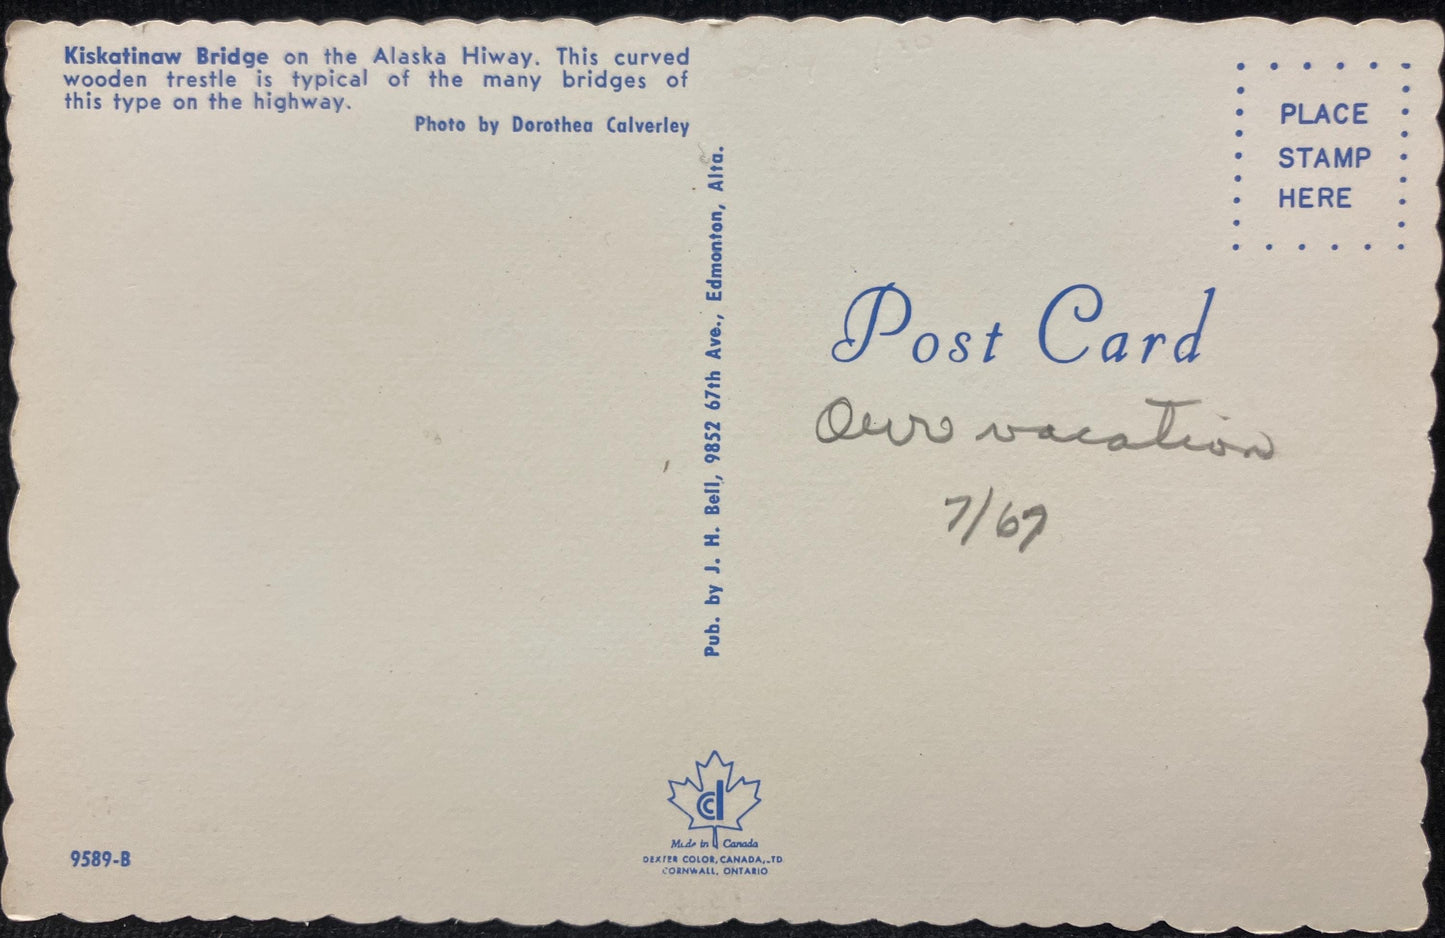 Kiskatinaw Bridge on the Alaska Hiway. This curved
wooden trestle is typical of the many bridges of
this type on the highway.
Photo by Dorothea Calverley
Pub. by J. H. Bell, 9852 67th Ave., Edmonton, Alta.
PLACE
STAMP
HERE
Post Card
Our vacation
7/67
9589-B
Made in Canada
DEXTER COLOR, CANADA, LTD
CORNWALL, ONTARIO